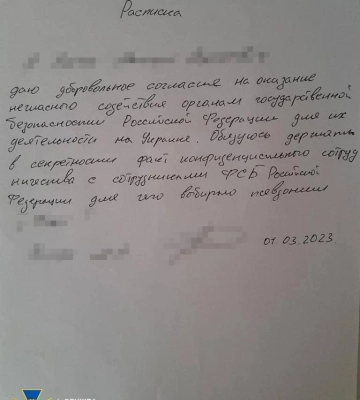 Расписка
даю добровольное согласие на оказание
негласного содействия органам государственной
безопасности Российской Федерации для их
деятельности на Украине. Обязуюсь держать
в секретности факт конфиденциального сотруд
ничества с сотрудниками ФСБ Российской
Федерации для чего выбираю псевдоним
01.03.2023